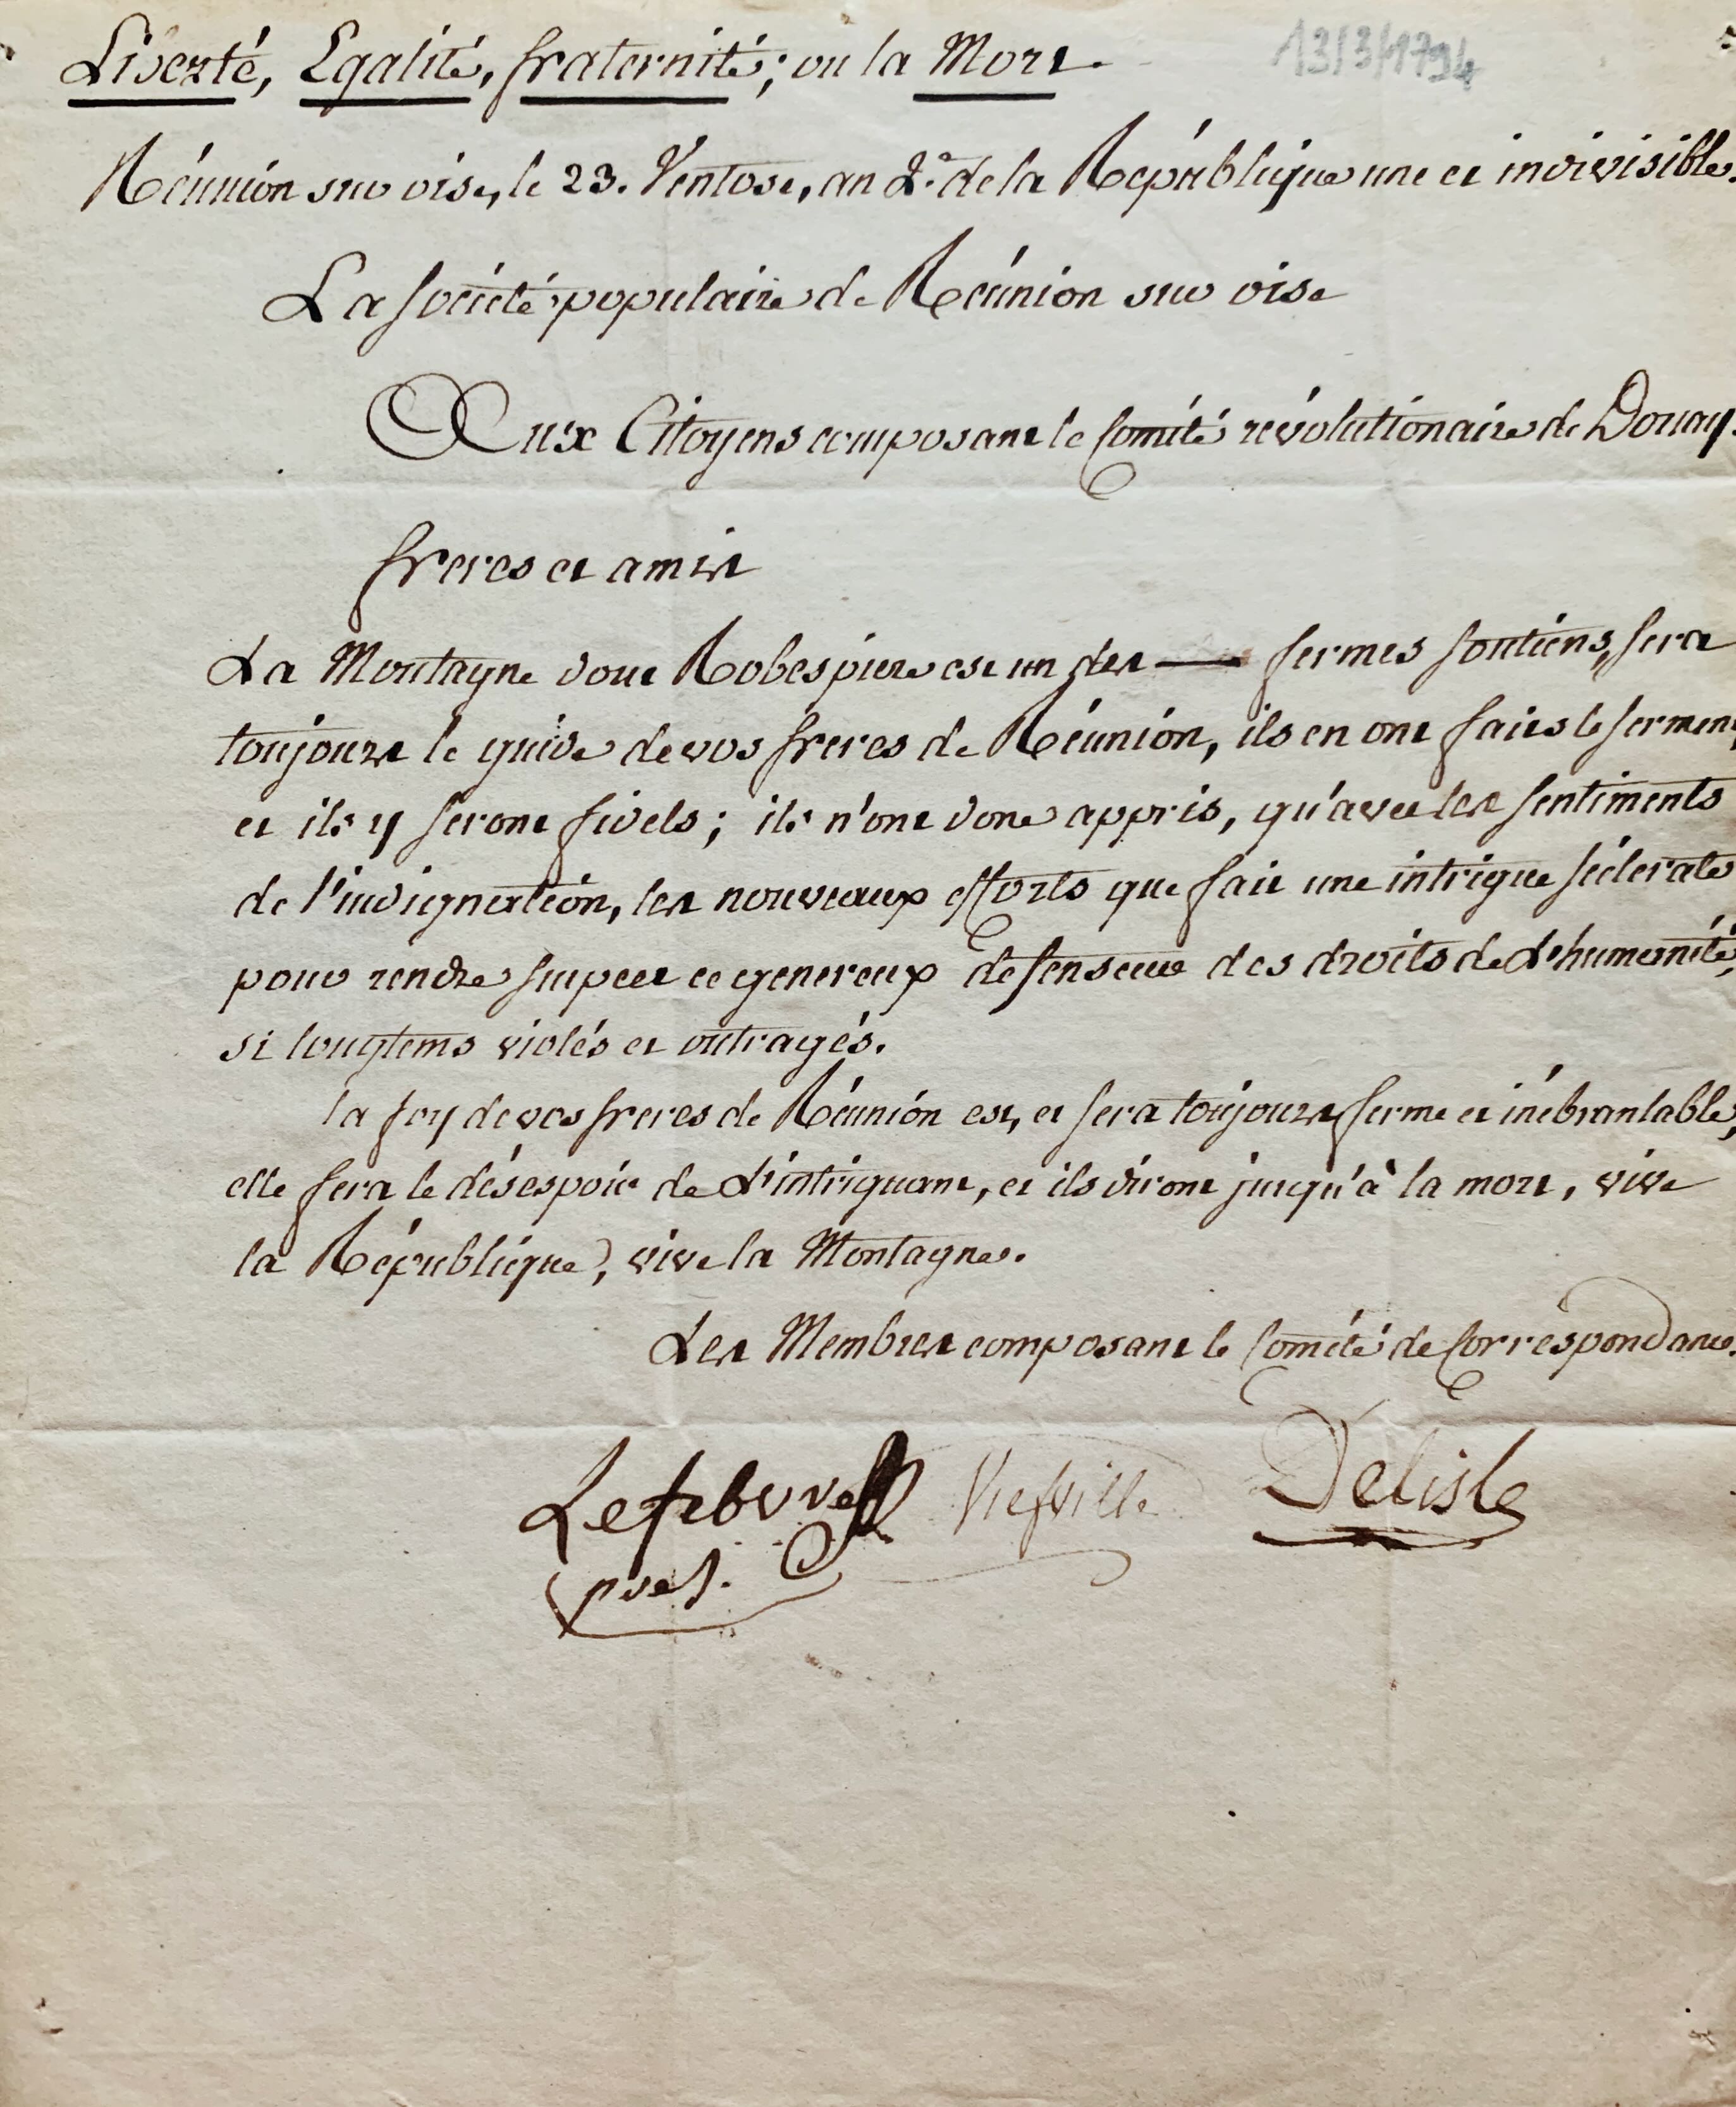 Liberté, Egalité, fraternité; ou la Mort.
13/3/1794
Réunion sur oise, le 23. Ventose, an 2.e de la République une et indivisible.
La société populaire de Réunion sur oise
Aux Citoyens composant le Comité révolutionaire de Douay.
freres et amis
La Montagne dont Robespierre est un des — fermes soutiens, sera
toujours le guide de vos freres de Réunion, ils en ont faits le serment,
et ils y seront fidels; ils n'ont donc appris, qu'avec les sentiments
de l'indignation, les nouveaux efforts que fait une intrigue scélérate
pour rendre suspect ce genereux défenseur des droits de L'humanité,
si longtems violés et outragés.
la foy de vos freres de Réunion est, et sera toujours ferme et inébranlable,
elle fera le désespoir de L'intriguant, et ils diront jusqu'à la mort, vive
la République, vive la Montagne.
Les Membres composant le Comité de Correspondance.
Lefebvre Viefville Delisle
pres.